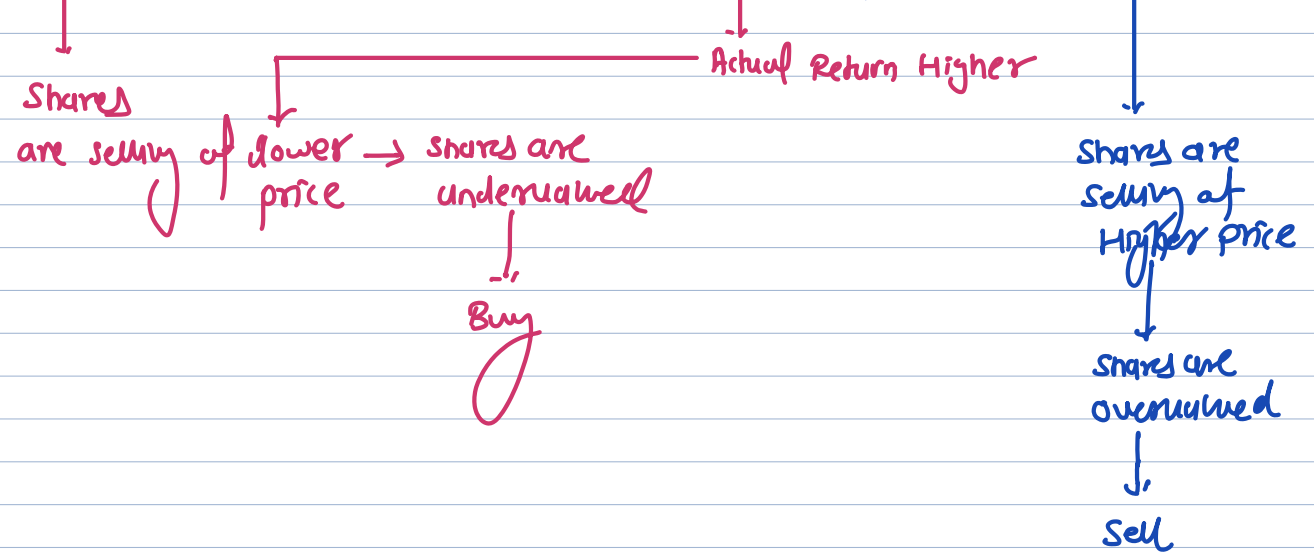 Actual Return Higher
Shares
are selling at lower → shares are
price undervalued
Buy
Shares are
selling at
Higher price
shares are
overvalued
Sell